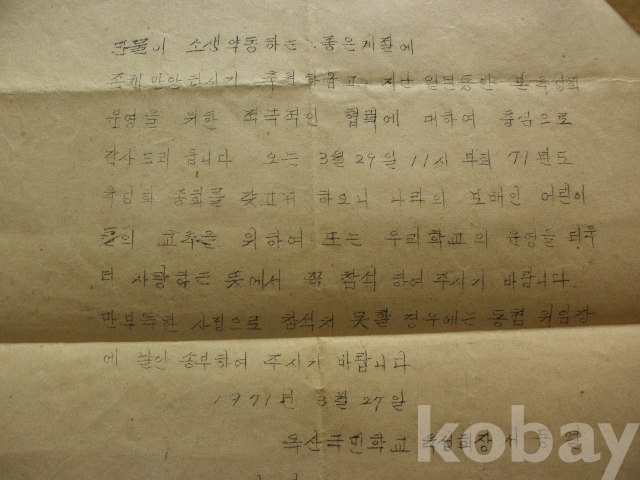 만물이 소생약동하는 좋은계절에
존체만안하시기 축원하옵고 지난 일년동안 본육성회
운영을 위한 적극적인 협력에 대하여 충심으로
감사드리 옵니다 오는 3월 29일 11시 부터 71년도
육성회 총회를 갖고저 하오니 나라의 보배인 어린이
들의 교육을 위하여 또는 우리학교의 운영을 더욱
더 사랑하는 뜻에서 꼭 참석 하여 주시기 바랍니다.
만부득한 사정으로 참석치 못할 경우에는 동첨 위임장
에 날인 송부하여 주시기 바랍니다
1971년 3월 27일
옥산국민학교 육성회장 서
kobay